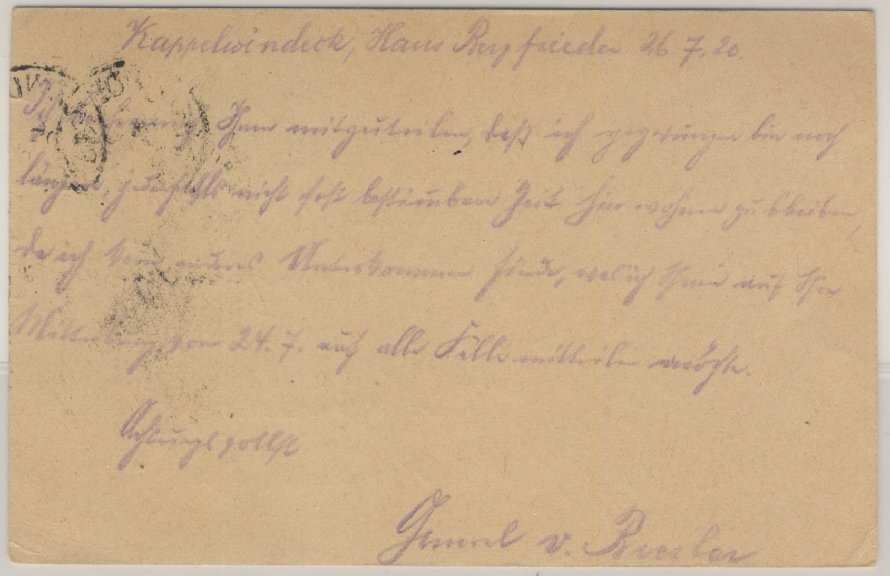 Kappelwindeck, Haus Bergfrieden 26.7.20
Ich Ihnen mitzuteilen, daß ich gezwungen bin noch
länger, jedenfalls nicht fest bestimmbare Zeit hier wohnen zu bleiben,
da ich kein anderes Unterkommen finde, was ich Ihnen auf Ihre
Mitteilung vom 24.7. auf alle Fälle mitteilen möchte.
Achtungsvollst
General v.